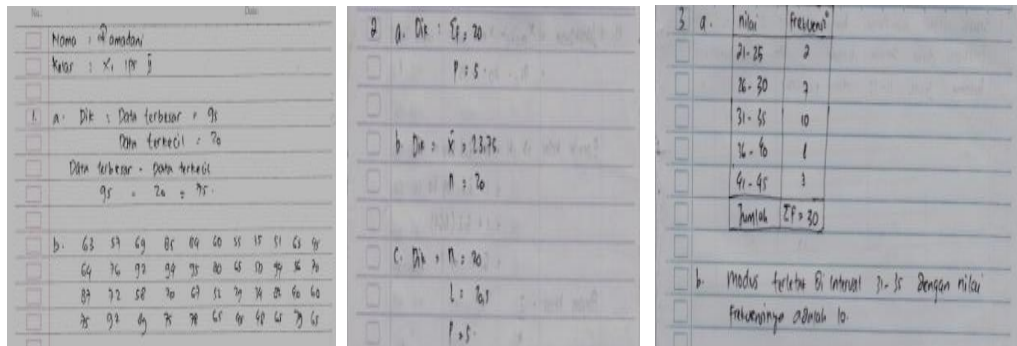 No:
Date:
Nama : Ramadani
Kelas : XI IPS
1. a. Dik : Data terbesar = 95
Data terkecil = 20
Data terbesar - Data terkecil
95 - 20 = 75.
b. 63 57 69 85 84 60 55 15 51 65
64 76 92 94 95 80 65 50 70
87 72 58 70 67 52 79 74 60 60
75 97 69 75 78 65 48 65 79 65
2 a. Dik : Σf = 20
P = 5
b. Dik = x̄ = 23,75
n = 20
c. Dik = n = 20
L = 20,5
P = 5
3. a. nilai frekuensi
21-25 2
26-30 7
31-35 10
36-40 8
41-45 3
Jumlah Σf = 30
b. Modus terletak Di interval 31-35 Dengan nilai
frekuensinya adalah 10.